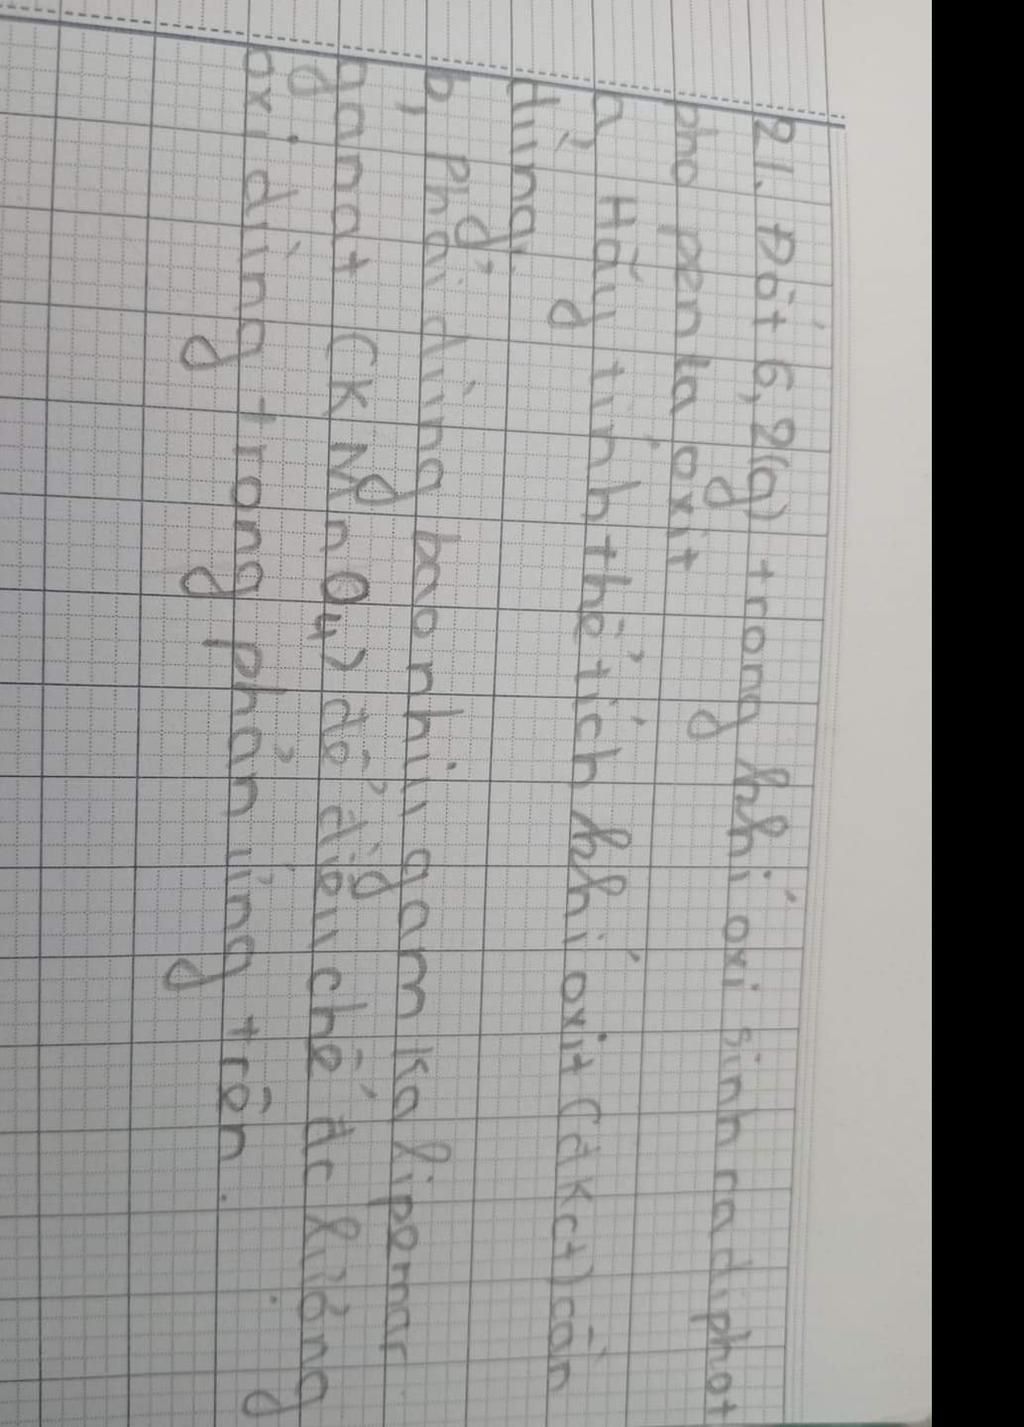 21. Đốt 6,2(g) trong khí oxi sinh ra điphot
pho penta oxit
a, Hãy tính thể tích khí oxit (đkct) cần
dùng
b, Phải dùng bao nhiu gam kalipemar
ganat (KMnO4) để điêu chế đc lương
oxi dùng trong phản ứng trên.